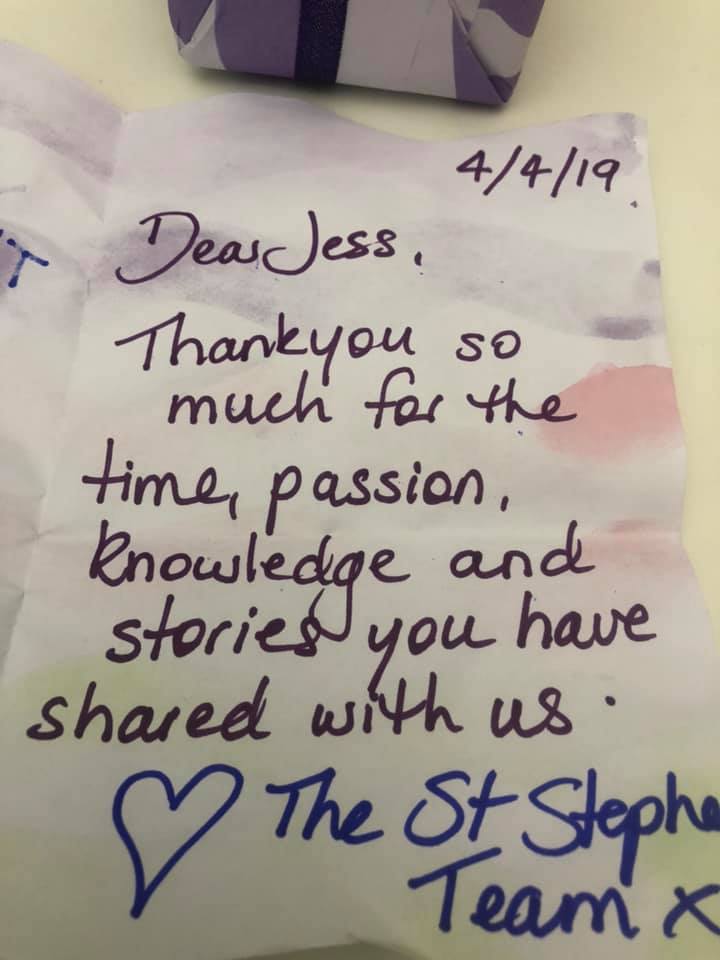 4/4/19.
Dear Jess,
Thankyou so
much for the
time, passion,
knowledge and
stories you have
shared with us.
The St Stephe
Team x